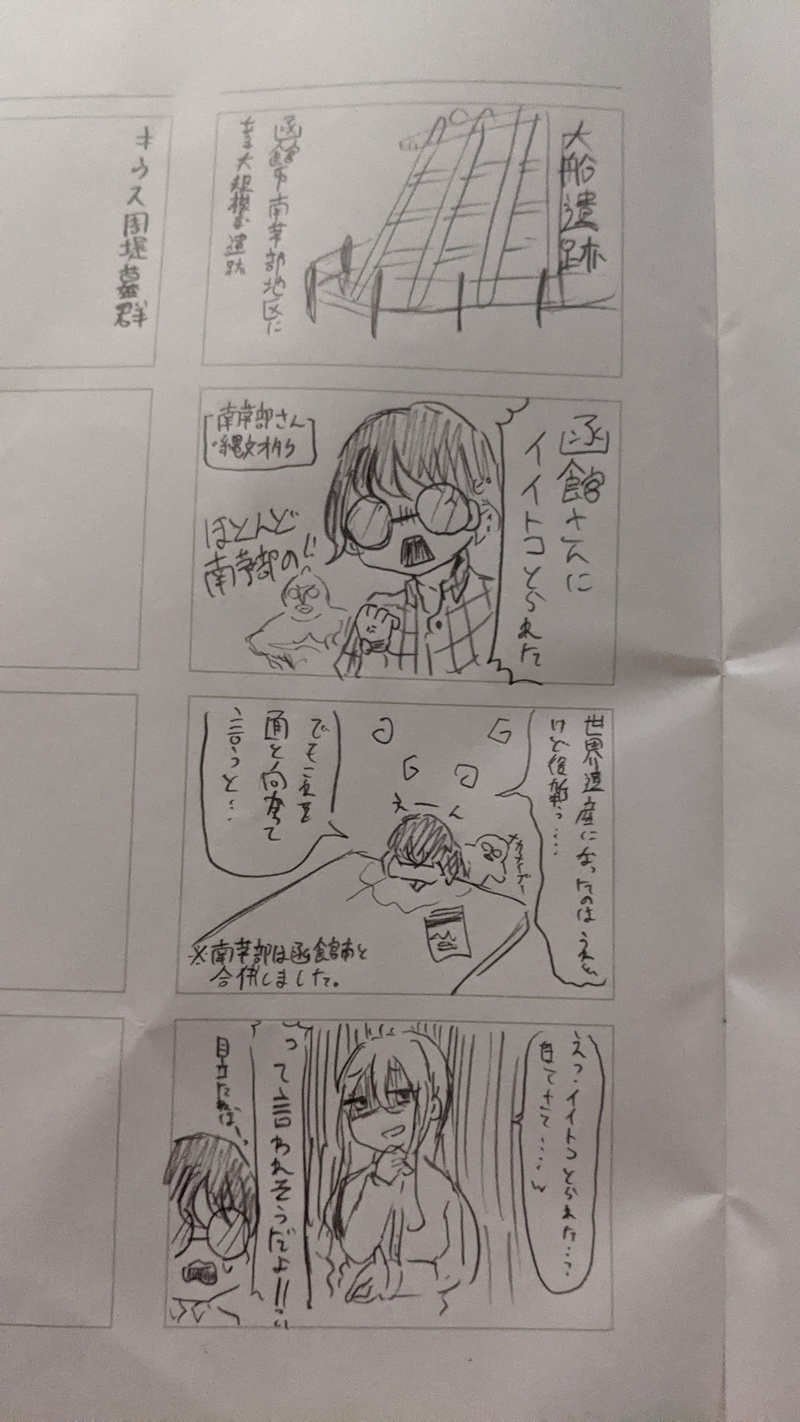 大船遺跡
函館市南茅部地区に
ある大規模な遺跡
函館さんに
イイトコとられた
南茅部さん
・縄文オタク
ほとんど
南茅部の!!
世界遺産になったのはうれしい
けど複雑っ……
えーん
でもこれを
面と向かって
言うと…
※南茅部は函館市と
合併しました。
えっ…イイトコとられた…?
自てさて……w
って言われそうだよ!!
目立たねば…
キウス周堤墓群